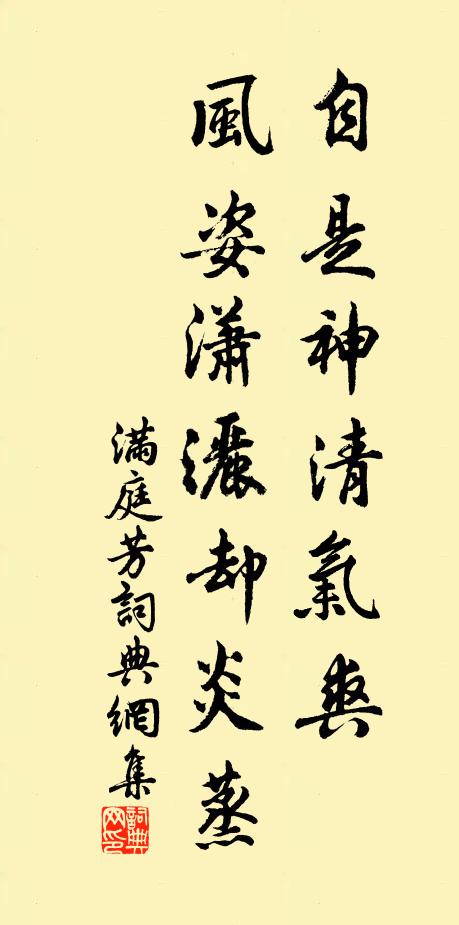 自是神清氣爽
風姿瀟灑却炎蒸
滿庭芳詞典網集
詞典网印